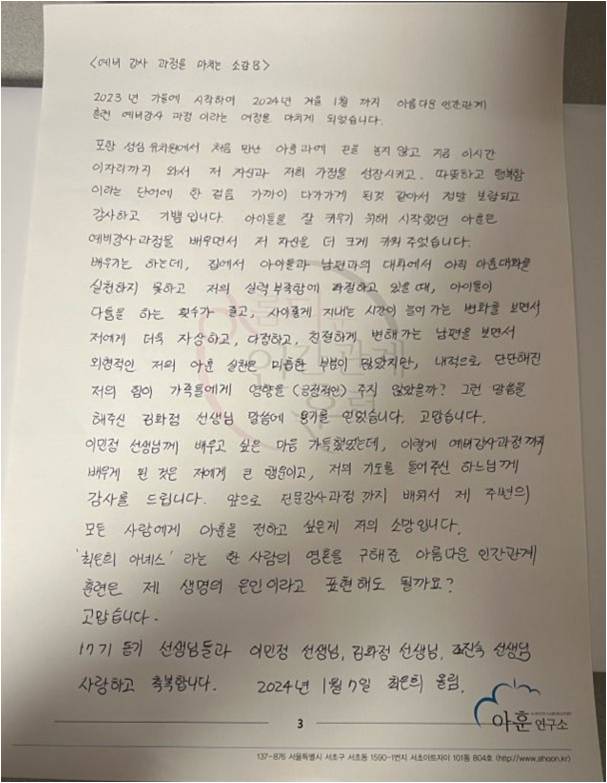 <예비 강사 과정을 마치는 소감문>
2023년 가을에 시작하여 2024년 겨울 1월 까지 아름다운 인간관계
훈련 예비강사 과정 이라는 여정을 마치게 되었습니다.
포항 성심 유치원에서 처음 만난 아훈과에 끈을 놓지 않고 지금 이시간
이자리까지 와서 저 자신과 저희 가정을 성장시키고. 따뜻하고 행복함
이라는 단어에 한 걸음 가까이 다가가게 된것 같아서 정말 보람되고
감사하고 기쁩니다. 아이들을 잘 키우기 위해 시작했던 아훈은
예비강사과정을 배우면서 저 자신을 더 크게 키워주었습니다.
배우기는 하는데, 집에서 아이들과 남편과의 대화에서 아직 아훈대화를
실천하지 못하고 저의 실력 부족함에 좌절하고 있을 때, 아이들이
다툼을 하는 횟수가 줄고, 사이좋게 지내는 시간이 늘어가는 변화를 보면서
저에게 더욱 자상하고, 다정하고, 친절하게 변해가는 남편을 보면서
외형적인 저의 아훈 실천은 미흡한 부분이 많았지만, 내적으로 단단해진
저의 힘이 가족들에게 영향을(긍정적인) 주지 않았을까? 그런 말씀을
해주신 김화정 선생님 말씀에 용기를 얻었습니다. 고맙습니다.
이민정 선생님께 배우고 싶은 마음 가득했었는데, 이렇게 예비강사과정까지
배우게 된 것은 저에게 큰 행운이고, 저의 기도를 들어주신 하느님께
감사를 드립니다. 앞으로 전문강사과정 까지 배워서 제 주변의
모든 사람에게 아훈을 전하고 싶은게 저의 소망입니다.
'최은희 아녜스' 라는 한 사람의 영혼을 구해준 아름다운 인간관계
훈련은 제 생명의 은인이라고 표현해도 될까요?
고맙습니다.
17기 동기 선생님들과 이민정 선생님, 김화정 선생님, 조진숙 선생님
사랑하고 축복합니다. 2024년 1월 7일 최은희 올림.
3
아훈 연구소
137-876 서울특별시 서초구 서초동 1590-1번지 서초아트자이 101동 804호 (http://www.ahoon.kr)